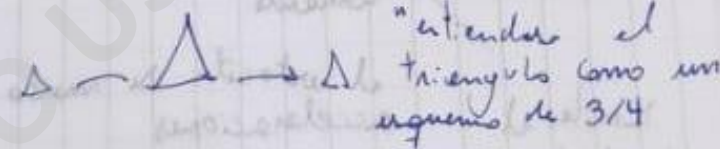 "entiendase el
triangulo como un
esquema de 3/4